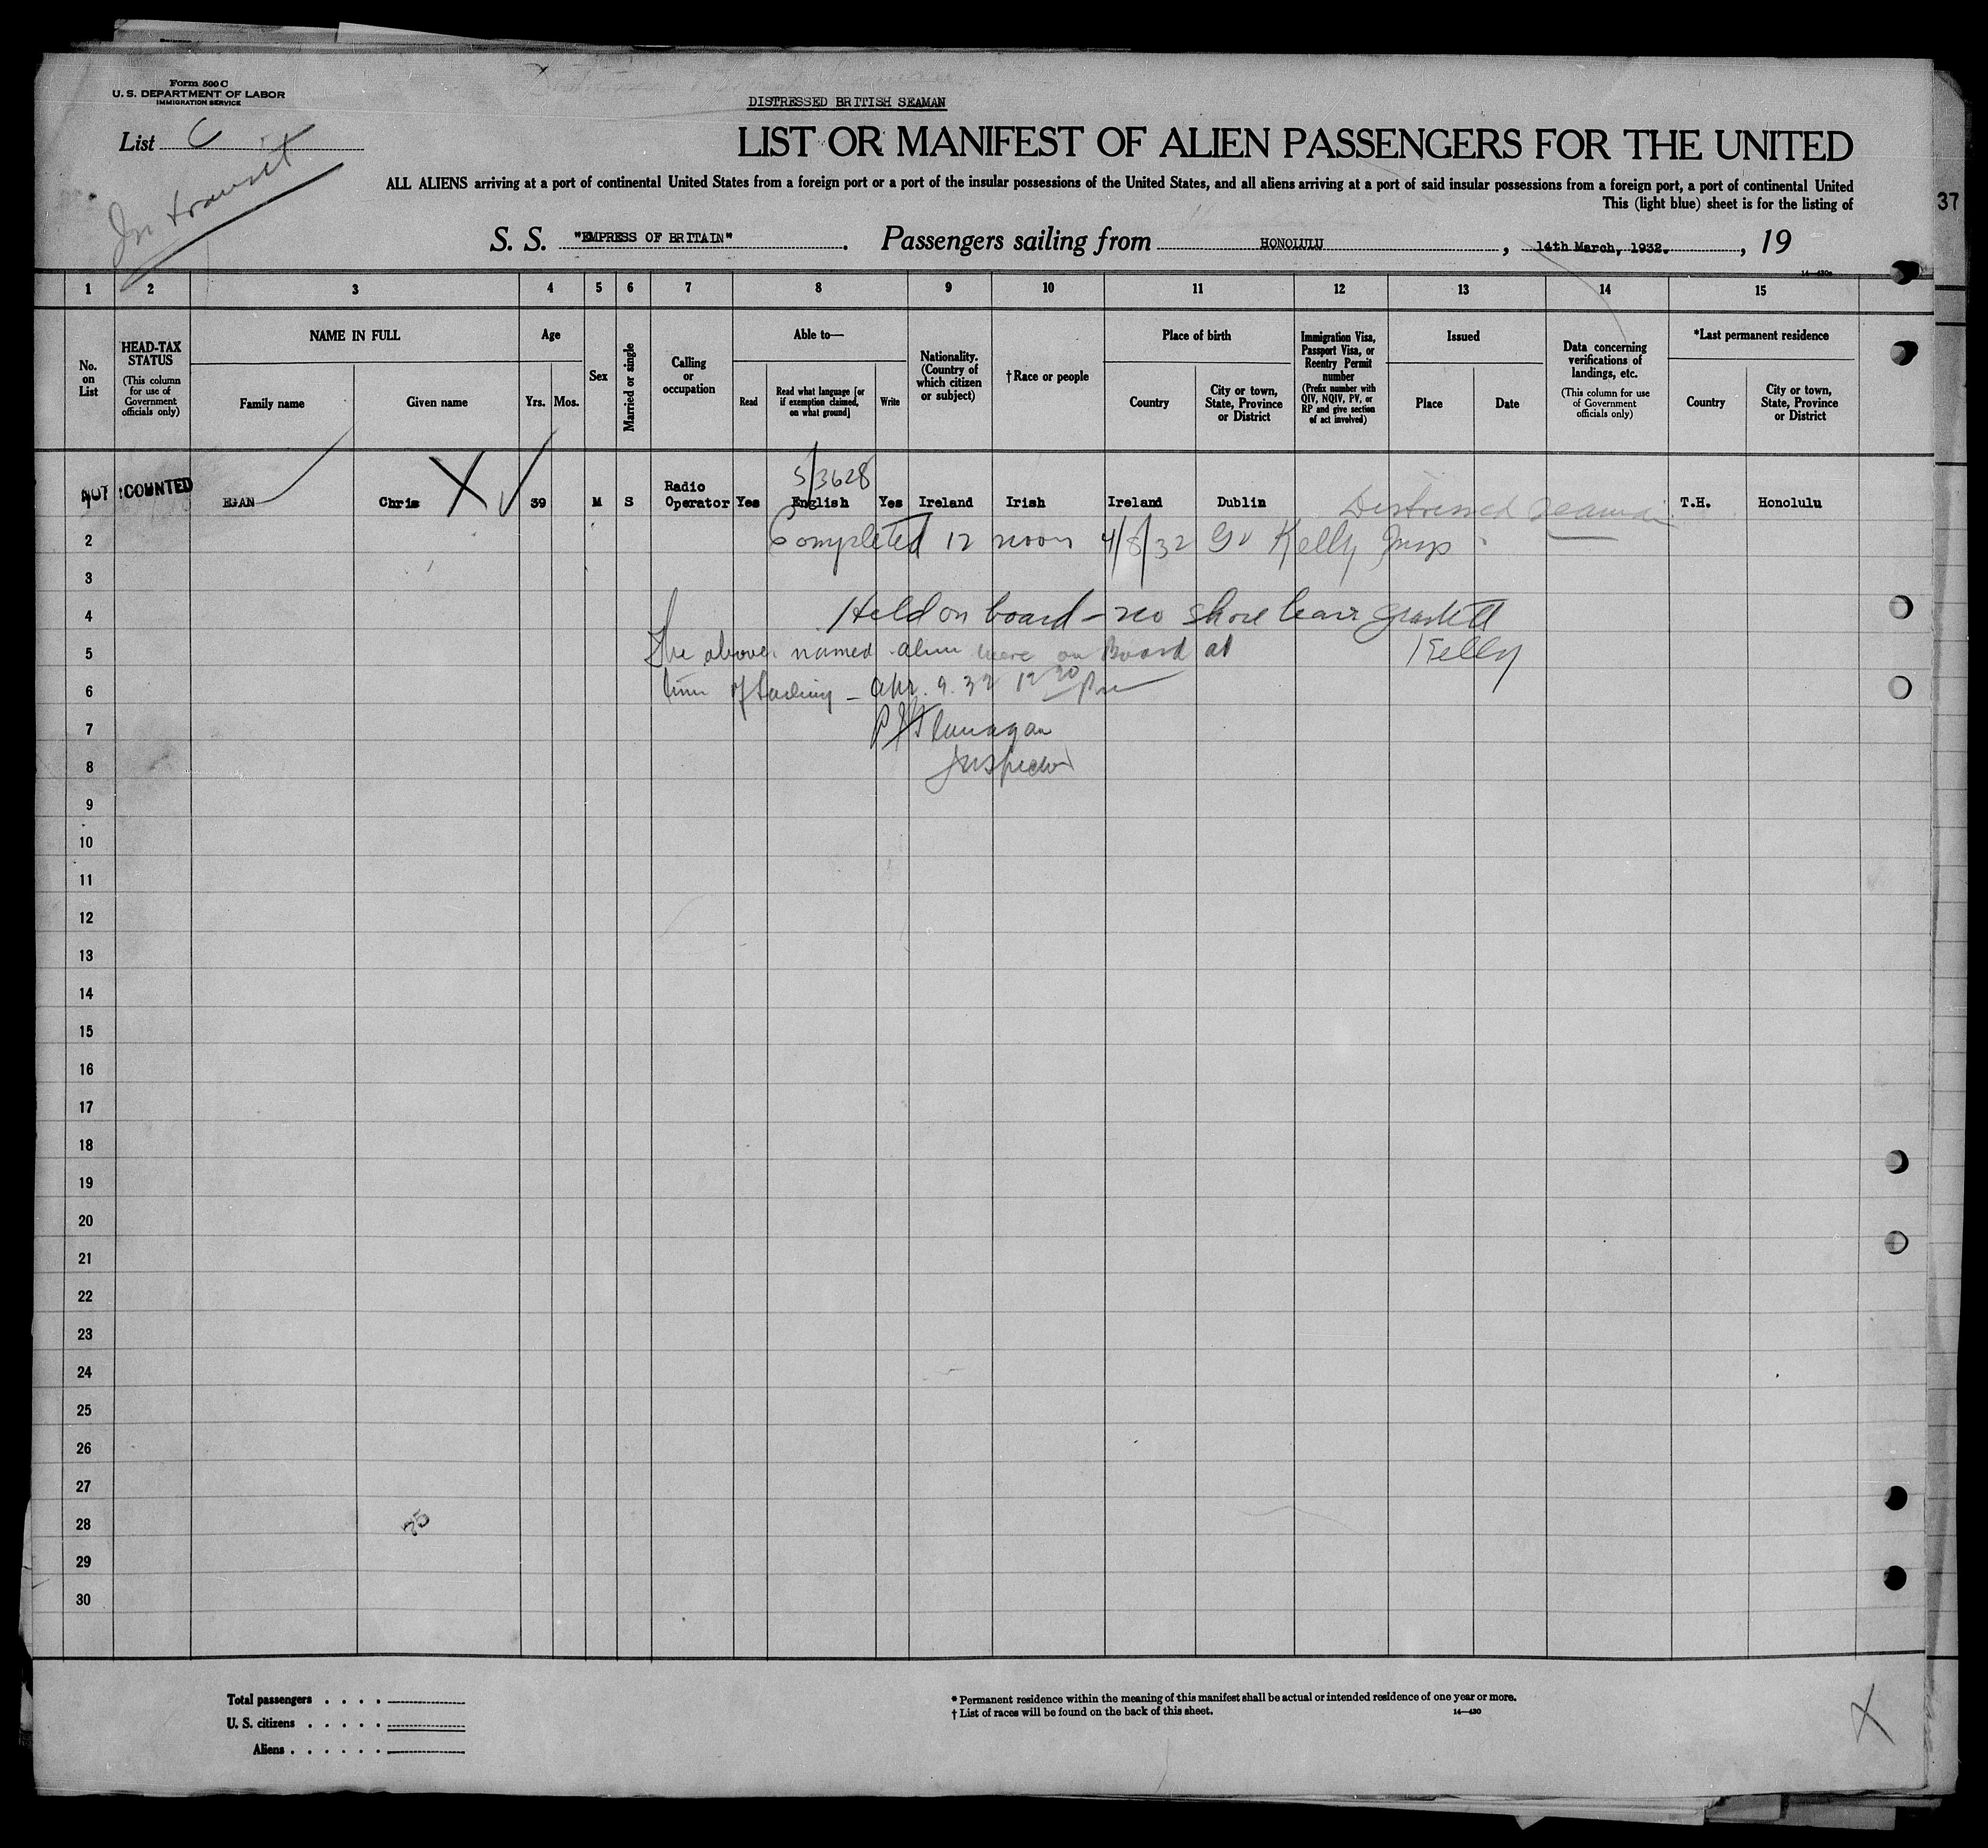 Form 500 C
U. S. DEPARTMENT OF LABOR
IMMIGRATION SERVICE
List C
In transit
DISTRESSED BRITISH SEAMAN
LIST OR MANIFEST OF ALIEN PASSENGERS FOR THE UNITED
ALL ALIENS arriving at a port of continental United States from a foreign port or a port of the insular possessions of the United States, and all aliens arriving at a port of said insular possessions from a foreign port, a port of continental United
This (light blue) sheet is for the listing of
37
S. S. "EMPRESS OF BRITAIN". Passengers sailing from HONOLULU, 14th March, 1932., 19
14—430a
1 2 3 4 5 6 7 8 9 10 11 12 13 14 15
No. on List
HEAD-TAX STATUS
(This column for use of Government officials only)
NAME IN FULL
Family name
Given name
Age
Yrs. Mos.
Sex
Married or single
Calling or occupation
Able to—
Read
Read what language [or if exemption claimed, on what ground]
Write
Nationality. (Country of which citizen or subject)
† Race or people
Place of birth
Country
City or town, State, Province or District
Immigration Visa, Passport Visa, or Reentry Permit number
(Prefix number with QIV, NQIV, PV, or RP and give section of act involved)
Issued
Place
Date
Data concerning verifications of landings, etc.
(This column for use of Government officials only)
*Last permanent residence
Country
City or town, State, Province or District
5/3628
1 NOT COUNTED EGAN Chris X 39 M S Radio Operator Yes English Yes Ireland Irish Ireland Dublin Distressed Seaman T.H. Honolulu
2 Completed 12 noon 4/8/32 Kelly Insp
3
4 Held on board - no shore leave granted
5 The above named alien were on Board at Kelly
6 time of sailing - Apr. 9. 32 12 30 Pm
7 P J Flanagan
8 Inspector
9
10
11
12
13
14
15
16
17
18
19
20
21
22
23
24
25
26
27
28
29
30
Total passengers . . . .
U. S. citizens . . . . .
Aliens . . . . . .
* Permanent residence within the meaning of this manifest shall be actual or intended residence of one year or more.
† List of races will be found on the back of this sheet.
14—430
X